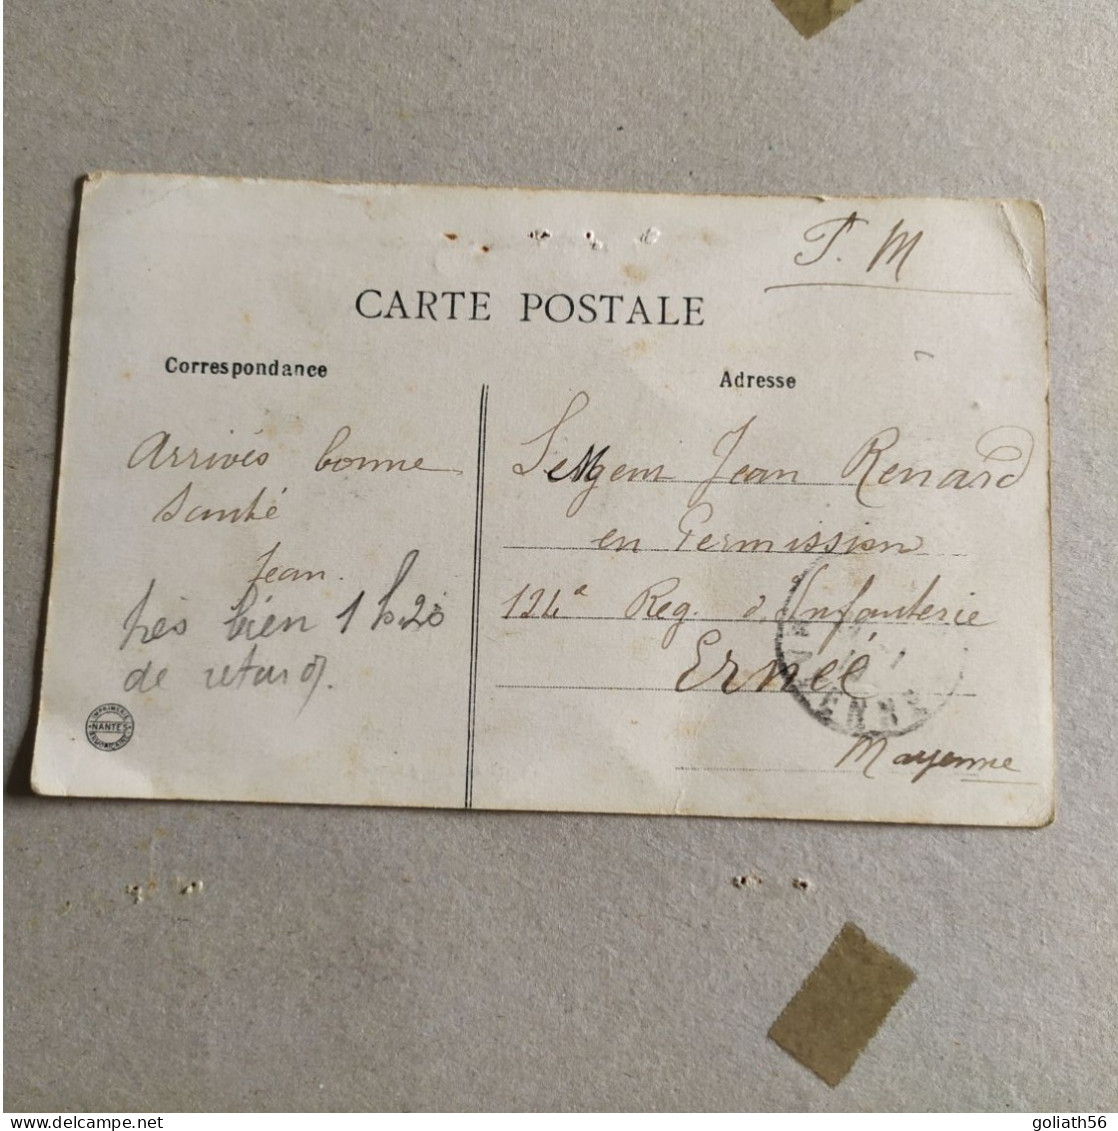 F. M
CARTE POSTALE
Correspondance
Arrivés bonne
Santé
Jean.
très bien 1 h.20
de retard.
IMPRIMERIE
NANTES
ARMORICAINE
Adresse
Sergent Jean Renard
en Permission
124e Reg. d'Infanterie
Ernée
Mayenne
goliath56